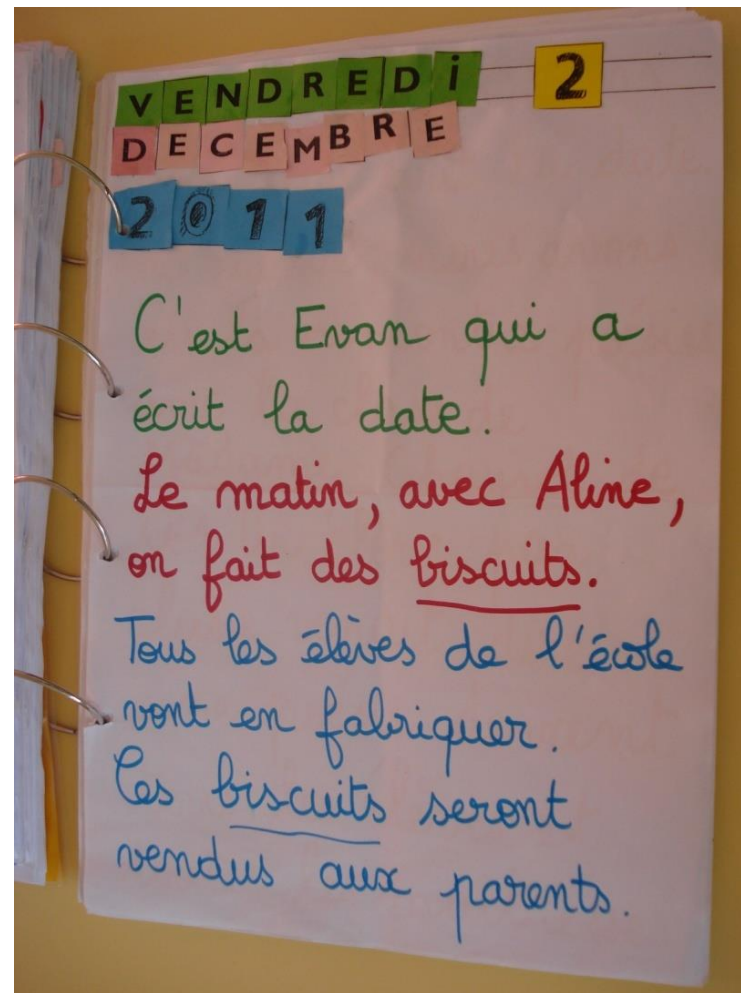 VENDREDi 2
DECEMBRE
2011
C'est Evan qui a
écrit la date.
Le matin, avec Aline,
on fait des biscuits.
Tous les élèves de l'école
vont en fabriquer.
Ces biscuits seront
vendus aux parents.